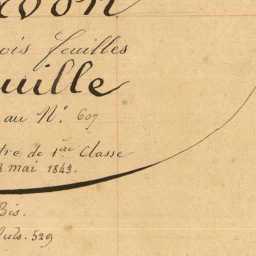 ois feuilles
uille
au N° 607
tre de 1ère Classe
mai 1843.
Bis.
529